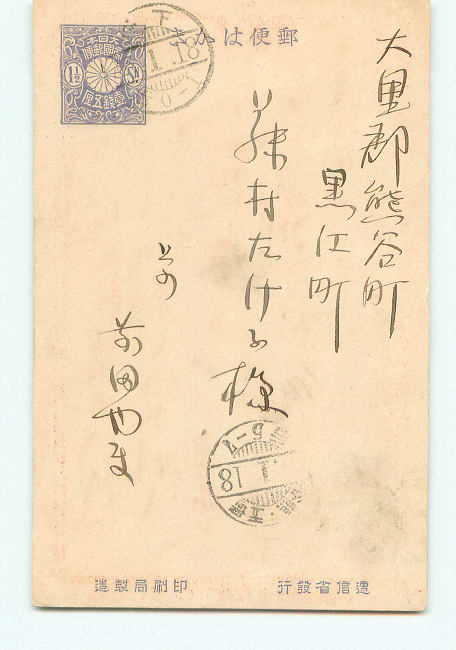 郵便はかき
大日本
帝國郵便
1½ Sn.
壹錢五厘
大里郡熊谷町
黒江町
村たけ子様
上の
前田やま
1.18
5-7
1.18
逓信省發行
印刷局製造